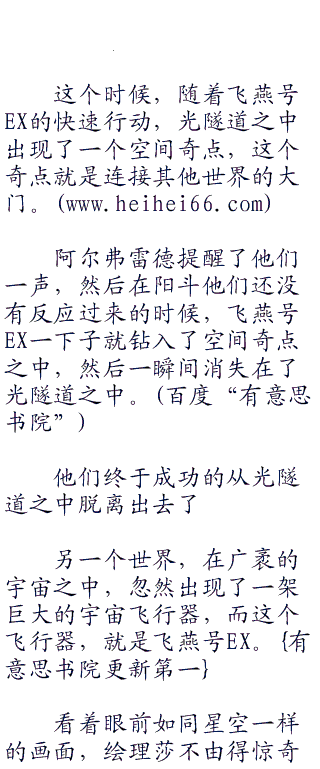 这个时候，随着飞燕号
EX的快速行动，光隧道之中
出现了一个空间奇点，这个
奇点就是连接其他世界的大
门。(www.heihei66.com)
阿尔弗雷德提醒了他们
一声，然后在阳斗他们还没
有反应过来的时候，飞燕号
EX一下子就钻入了空间奇点
之中，然后一瞬间消失在了
光隧道之中。(百度“有意思
书院”)
他们终于成功的从光隧
道之中脱离出去了
另一个世界，在广袤的
宇宙之中，忽然出现了一架
巨大的宇宙飞行器，而这个
飞行器，就是飞燕号EX。{有
意思书院更新第一}
看着眼前如同星空一样
的画面，绘理莎不由得惊奇